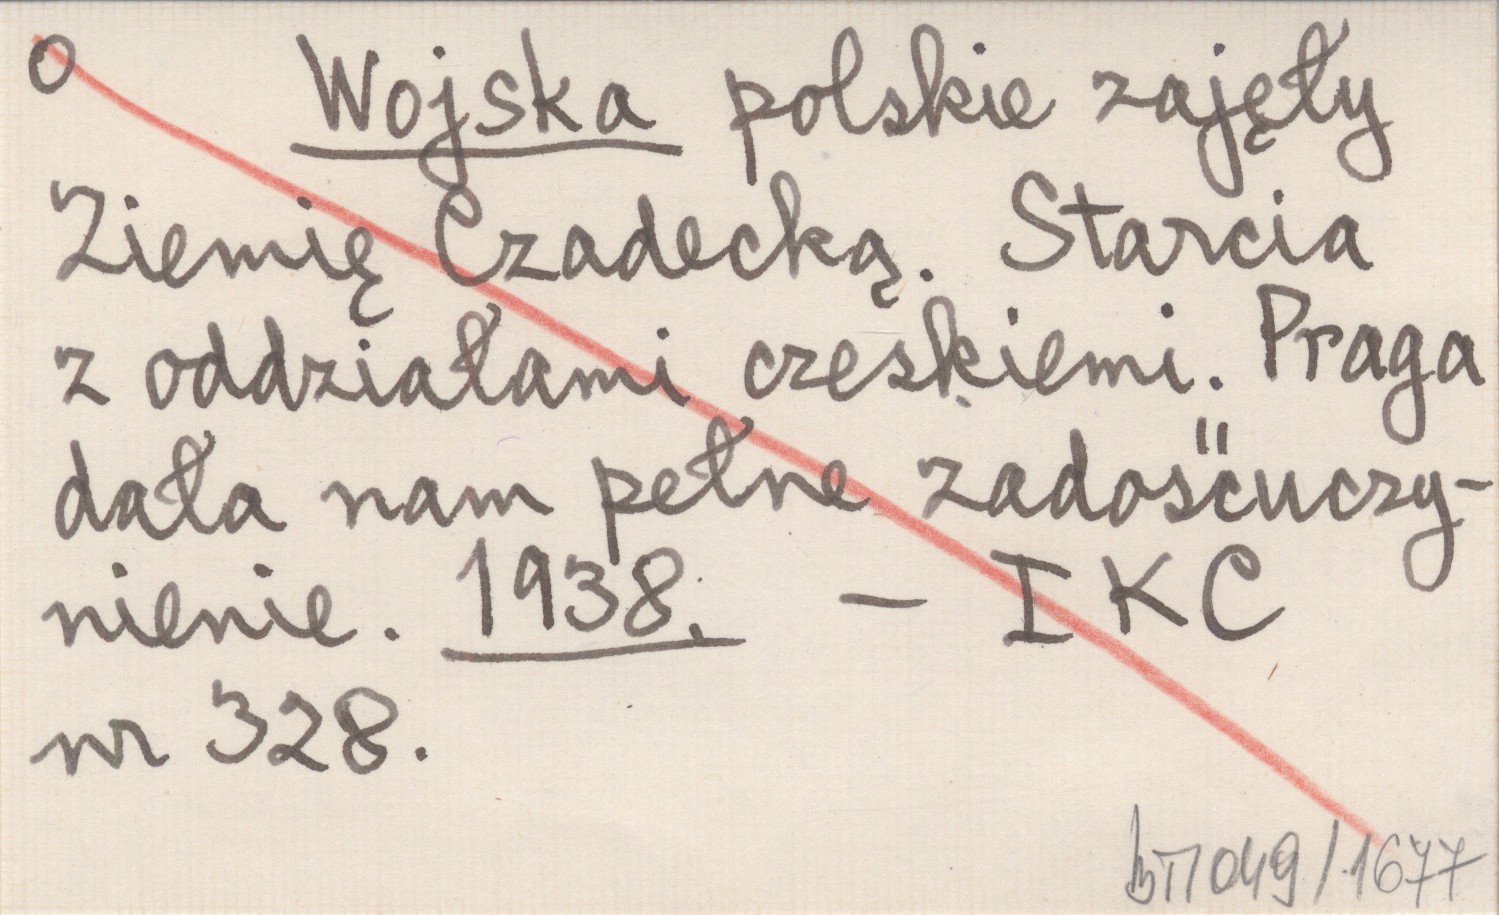 O Wojska polskie zajęły
Ziemię Czadecką. Starcia
z oddziałami czeskiemi. Praga
dała nam pełne zadośćuczy-
nienie. 1938. – IKC
nr 328.
049/1677